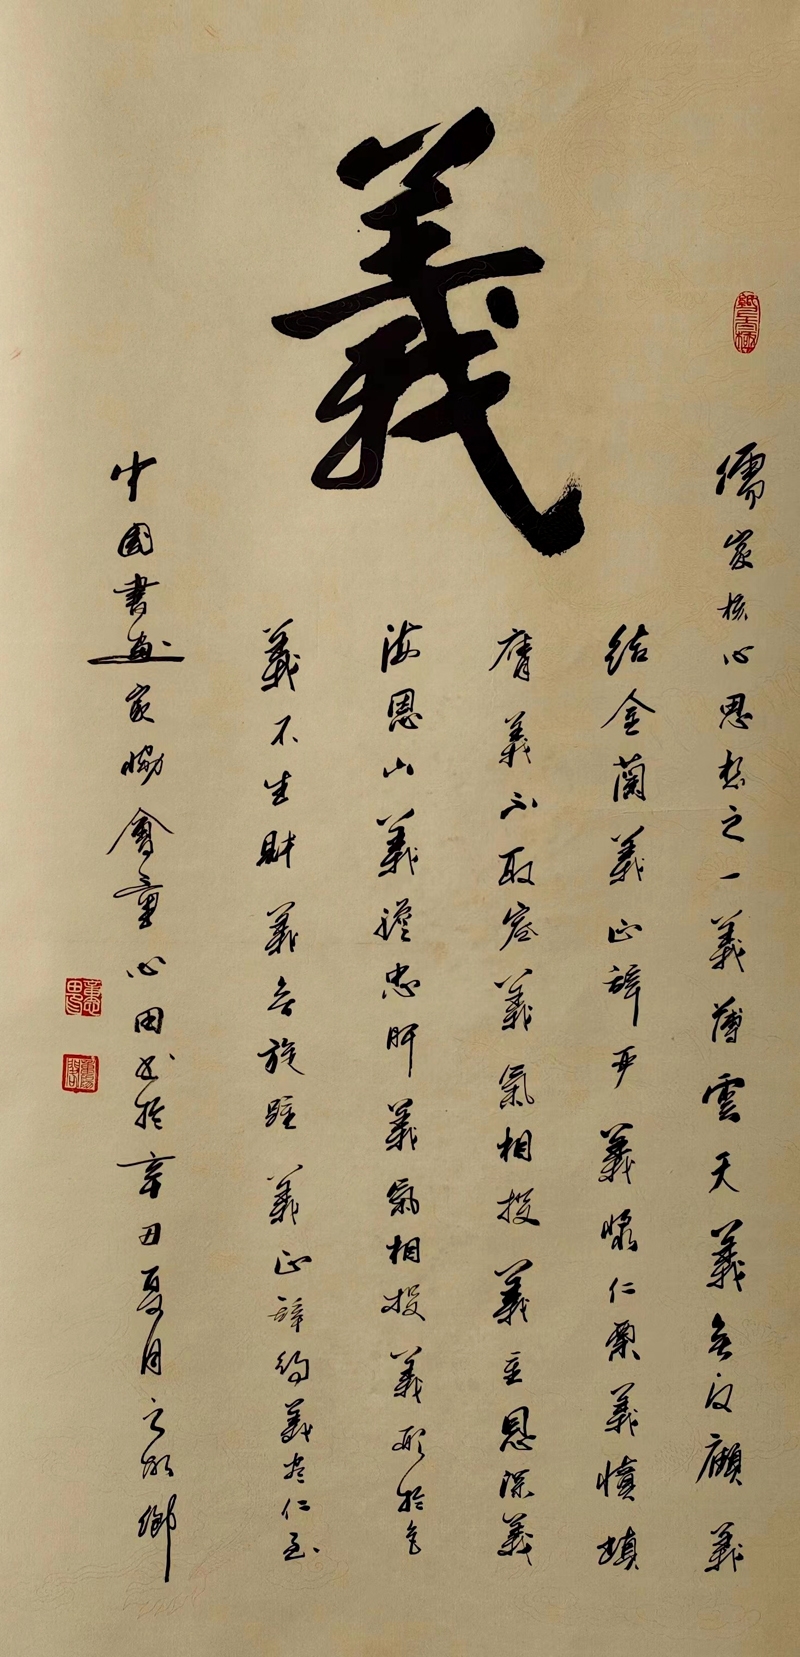 義
儒家核心思想之一義薄雲天義無反顧義
結金蘭義正辞严義懷仁
義憤填
膺義不取容義氣相投義重恩深義
海恩山義膽忠肝義氣相投義形於色
義不生財義無旋踵義正辞約義尽仁至
中國書画家協會童心田书於辛丑夏月之故鄉